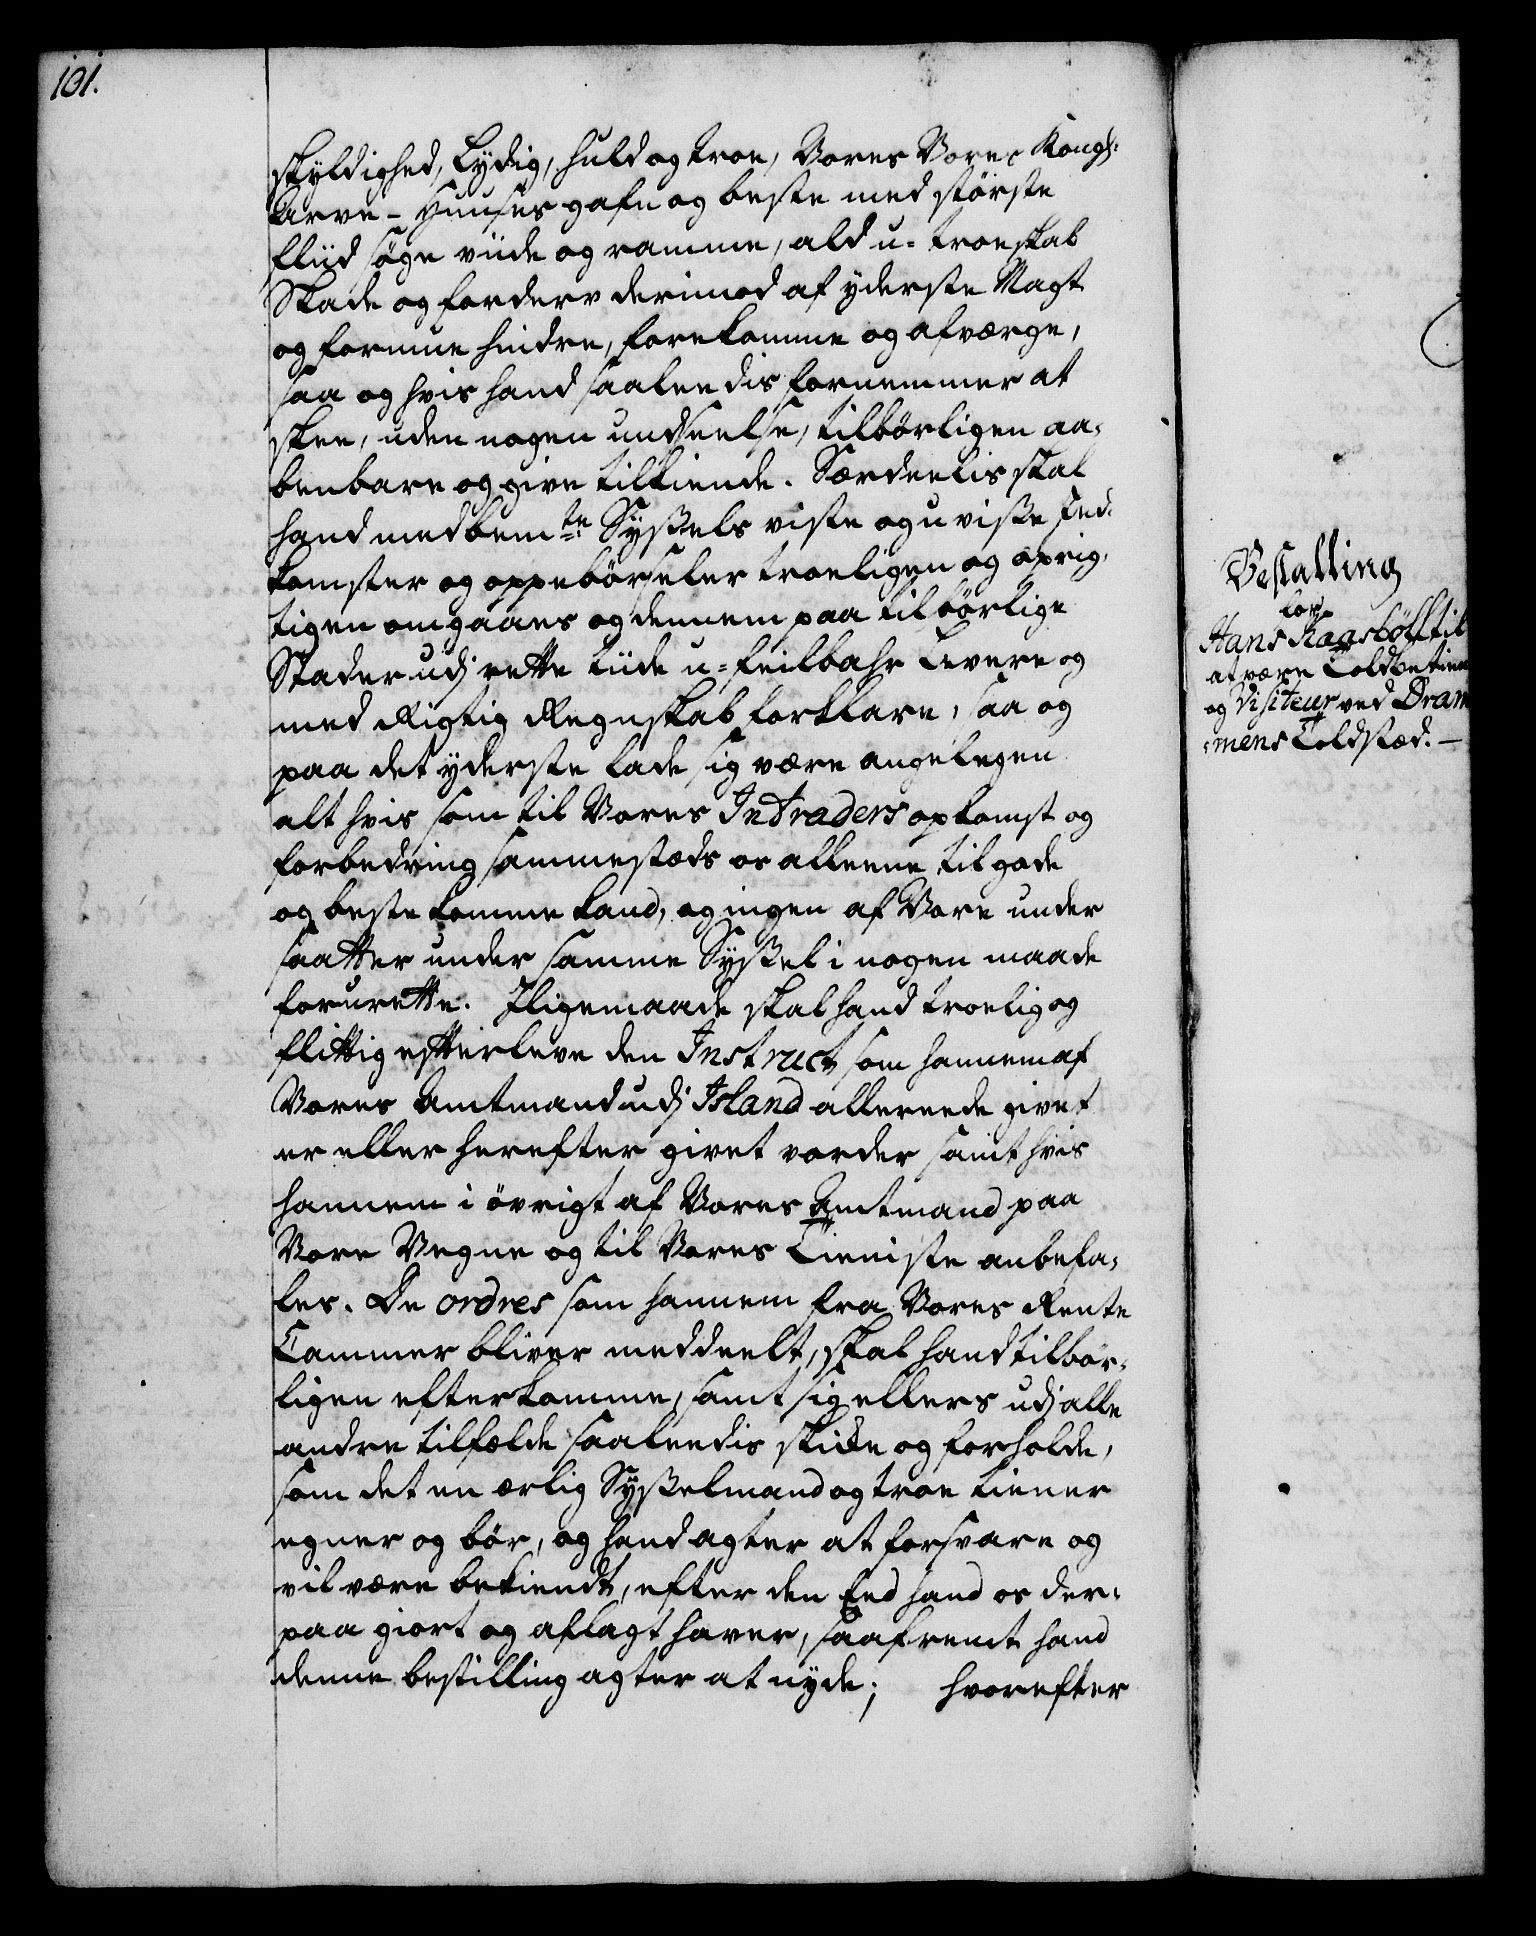 101.
skyldighed, Lydig, huld og troe, Vores Vores Kongl:
Arve-Huuses gafn og beste med største
fliid søge viide og ramme, ald u-troeskab
Skade og forderv derimod af yderste Magt
og formue hindre, forekomme og afværge,
saa og hvis hand saaleedis fornemmer at
skee, uden nogen undseelse, tilbørligen aa-
benbare og give tilkiende. Særdeelis skal
hand med bem.te Syssels visse og uvisse Ind-
komster og oppebørseler troeligen og oprig-
tigen omgaaes og dennem paa tilbørlige
Stader udj rette tiide u-feilbahr Levere og
med Rigtig Regnskab forklare, saa og
paa det yderste lade sig være angelegen
alt hvis som til Vores Intraders opkomst og
forbedring sammestæds os alleene til gode
og beste komme kand, og ingen af Vore under
saatter under samme Syssel i nogen maade
forurette. Iligemaade skal hand troelig og
flittig efterleve den Instruct som hannem af
Vores Amtmand udj Island allereede givet
er eller herefter givet vorder samt hvis
hannem i øvrigt af Vores Amtmand paa
Vore Vegne og til Vores Tieniste anbefa-
les. De ordres som hannem fra Vores Rente
Cammer bliver meddeelt, skal hand tilbør-
ligen efterkomme, samt sig ellers udj alle
andre tilfælde saaleedis skicke og forholde,
som det en ærlig Sysselmand og troe tiener
egner og bør, og hand agter at forsvare og
vil være bekiendt, efter den Eed hand os der-
paa giort og aflagt haver, saafremt hand
denne bestilling agter at nyde; hvorefter
Bestalling
for
Hans Kaasbøll til
at være Toldbetien
og Visiteur ved Dram
-mens Toldstæd.-